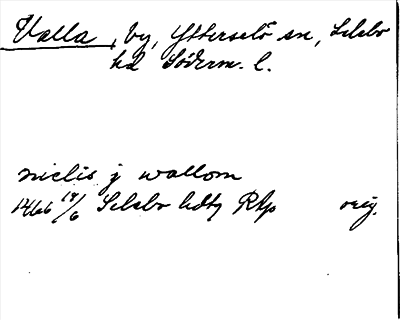 Valla, by, Ytterselö sn, Selebo
hd Söderm. l.
niclis j wallom
1466 17/6 Selebo hdtg RAp orig.